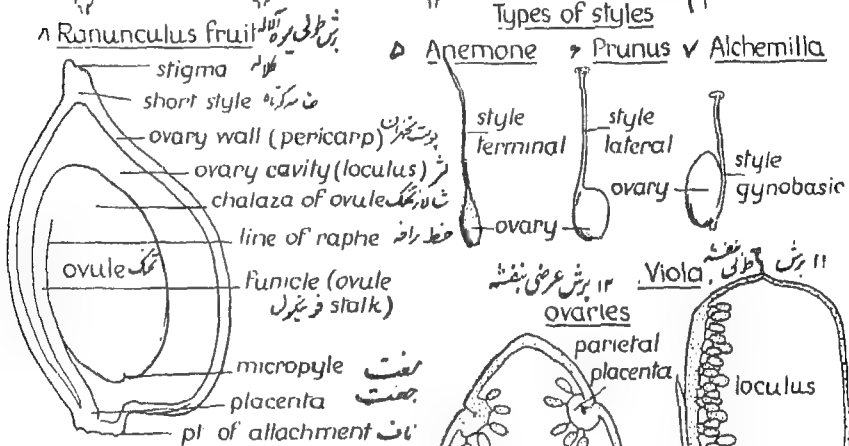 Types of styles
۸ Ranunculus fruit برش طولی میوه آلاله
stigma کلاله
short style خامه کوتاه
ovary wall (pericarp) پوست تخمدان
ovary cavity (loculus)
chalaza of ovule شالاز تخمک
line of raphe خط رافه
ovule تخمک
funicle (ovule
stalk) فونیکول
micropyle سفت
placenta جفت
pt of attachment ناف
۵ Anemone
۶ Prunus
۷ Alchemilla
style
terminal
style
lateral
style
gynobasic
ovary
ovary
۱۲ برش عرضی بنفشه
Viola
۱۱ برش طولی بنفشه
ovaries
parietal
placenta
loculus